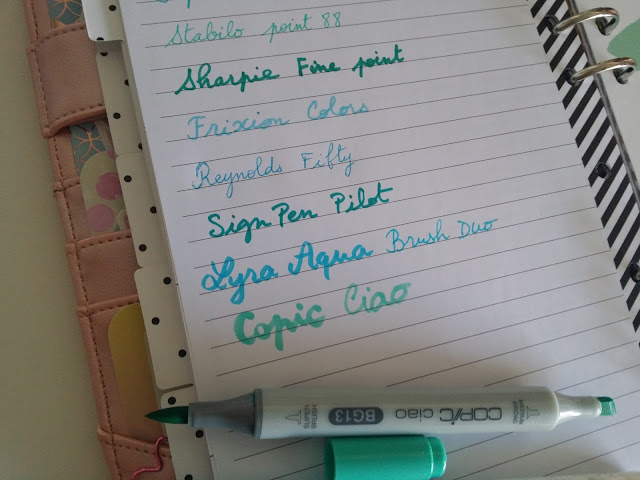 Stabilo point 88
Sharpie Fine point
Frixion Colors
Reynolds Fifty
Sign Pen Pilot
Lyra Aqua Brush Duo
Copic Ciao
SUPER BRUSH BG13 COPIC ciao MEDIUM BROAD